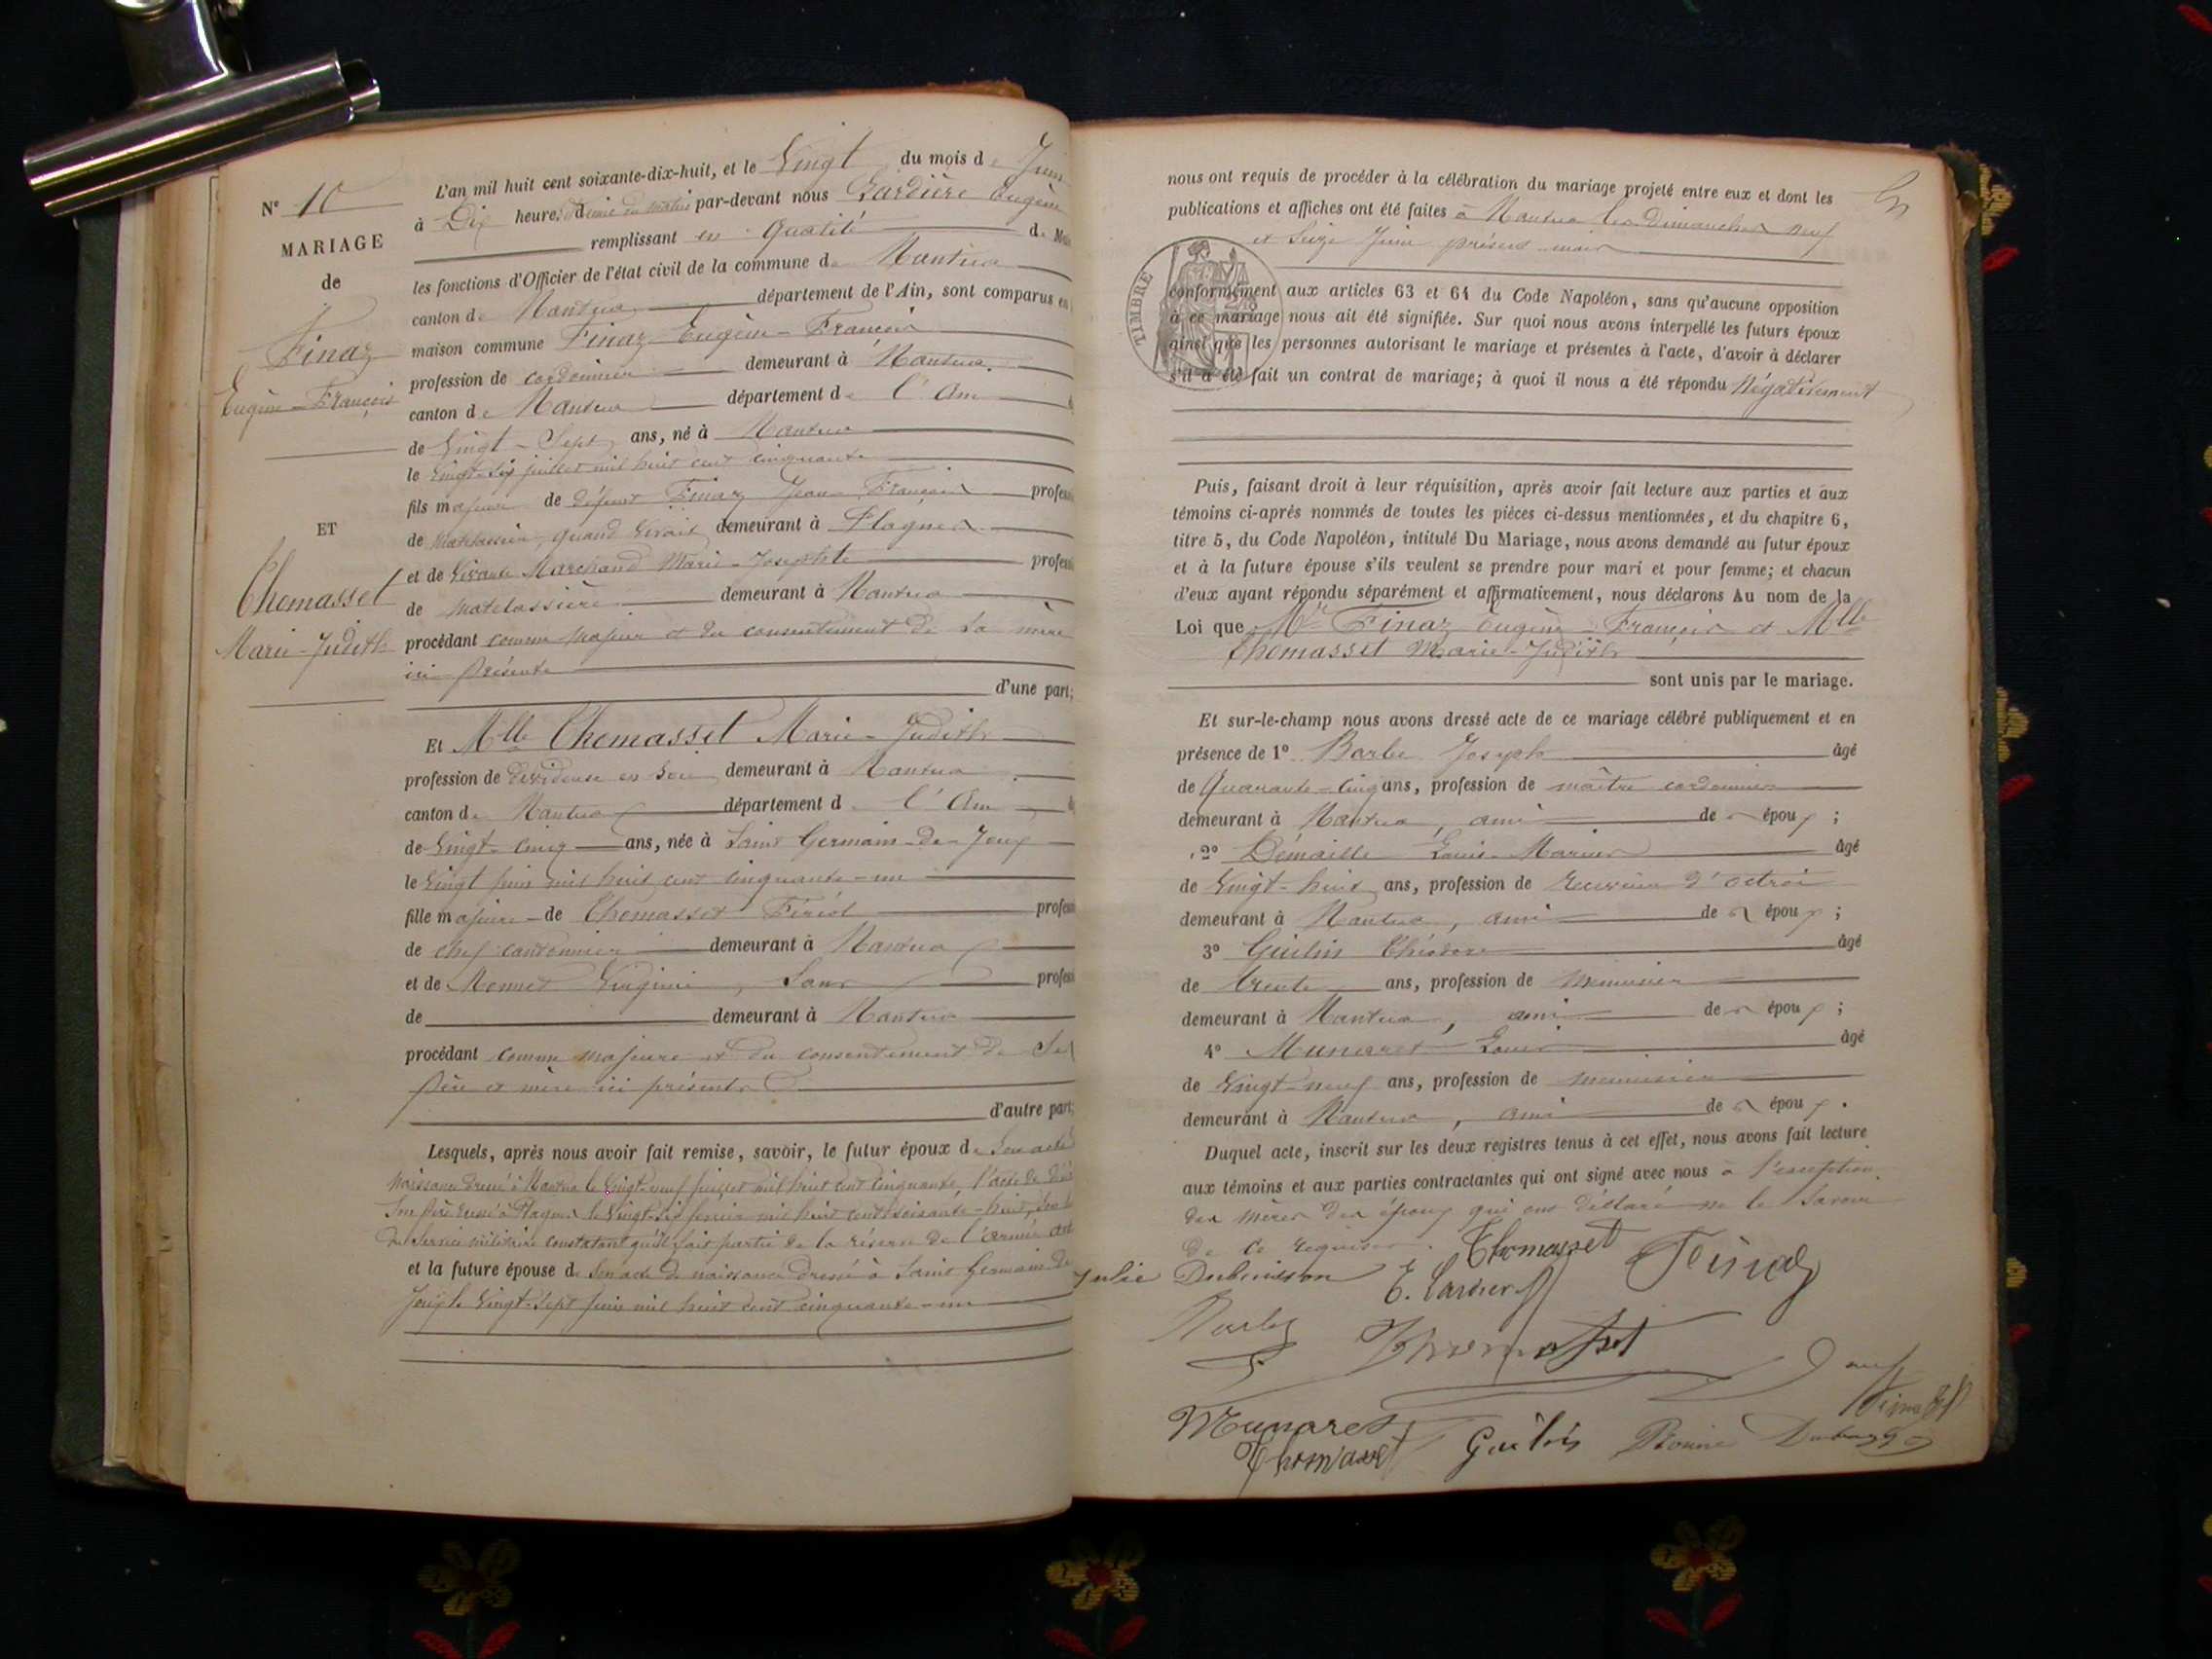 N° 10
MARIAGE
de
Finaz
Eugène-François
ET
Thomasset
Marie-Judith
L'an mil huit cent soixante-dix-huit, et le Vingt du mois de Juin
à Dix heures demie du matin par-devant nous Lardière Eugène
remplissant en qualité de
les fonctions d'Officier de l'état civil de la commune de Nantua
canton de Nantua département de l'Ain, sont comparus en
maison commune Finaz Eugène-François
profession de cordonnier demeurant à Nantua
canton de Nantua département de l'Ain
de Vingt-Sept ans, né à Nantua
le Vingt-six juillet mil huit cent cinquante
fils majeur de défunt Finaz Jean-François profess
de matelassier, quand vivait demeurant à Plagnes
et de vivante Marchand Marie-Josephte profess
de matelassière demeurant à Nantua
procédant comme majeur et du consentement de sa mère
ici présente
d'une part;
Et Mlle Thomasset Marie-Judith
profession de Dévideuse en soie demeurant à Nantua
canton de Nantua département de l'Ain
de Vingt-cinq ans, née à Saint Germain-de-Joux
le Vingt juin mil huit cent cinquante-un
fille majeure de Thomasset Féréol profess
de chef cantonnier demeurant à Nantua
et de Monnet Virginie, sans profess
de demeurant à Nantua
procédant comme majeure et du consentement de ses
père et mère ici présents
d'autre part;
Lesquels, après nous avoir fait remise, savoir, le futur époux de son acte
naissance dressé à Nantua le Vingt-neuf juillet mil huit cent cinquante, l'acte de décès
son père dressé à Plagnes le Vingt-six février mil huit cent soixante-huit,
de service militaire constatant qu'il fait partie de la réserve de l'armée
et la future épouse de son acte de naissance dressé à Saint Germain de
Joux le Vingt-Sept juin mil huit cent cinquante-un
nous ont requis de procéder à la célébration du mariage projeté entre eux et dont les
publications et affiches ont été faites à Nantua les Dimanches neuf
et Seize Juin présent mois
TIMBRE
conformément aux articles 63 et 64 du Code Napoléon, sans qu'aucune opposition
à ce mariage nous ait été signifiée. Sur quoi nous avons interpellé les futurs époux
ainsi que les personnes autorisant le mariage et présentes à l'acte, d'avoir à déclarer
s'il a été fait un contrat de mariage; à quoi il nous a été répondu Négativement
Puis, faisant droit à leur réquisition, après avoir fait lecture aux parties et aux
témoins ci-après nommés de toutes les pièces ci-dessus mentionnées, et du chapitre 6,
titre 5, du Code Napoléon, intitulé Du Mariage, nous avons demandé au futur époux
et à la future épouse s'ils veulent se prendre pour mari et pour femme; et chacun
d'eux ayant répondu séparément et affirmativement, nous déclarons Au nom de la
Loi que Mr Finaz Eugène-François et Mlle
Thomasset Marie-Judith
sont unis par le mariage.
Et sur-le-champ nous avons dressé acte de ce mariage célébré publiquement et en
présence de 1° Barbe Joseph âgé
de Quarante-cinq ans, profession de maître cordonnier
demeurant à Nantua, ami des époux;
2° Démaille Louis-Marius âgé
de Vingt-huit ans, profession de Receveur d'octroi
demeurant à Nantua, ami des époux;
3° Guilin Théodore âgé
de Trente ans, profession de Menuisier
demeurant à Nantua, ami des époux;
4° Munaret Louis âgé
de Vingt-neuf ans, profession de menuisier
demeurant à Nantua, ami des époux.
Duquel acte, inscrit sur les deux registres tenus à cet effet, nous avons fait lecture
aux témoins et aux parties contractantes qui ont signé avec nous à l'exception
des mères des époux qui ont déclaré ne le savoir
de ce requises.
Thomasset Finaz
Julie Dubuisson E. Lardière
Barbe Thomasset
Finaz
Munaret
Thomasset Guilin